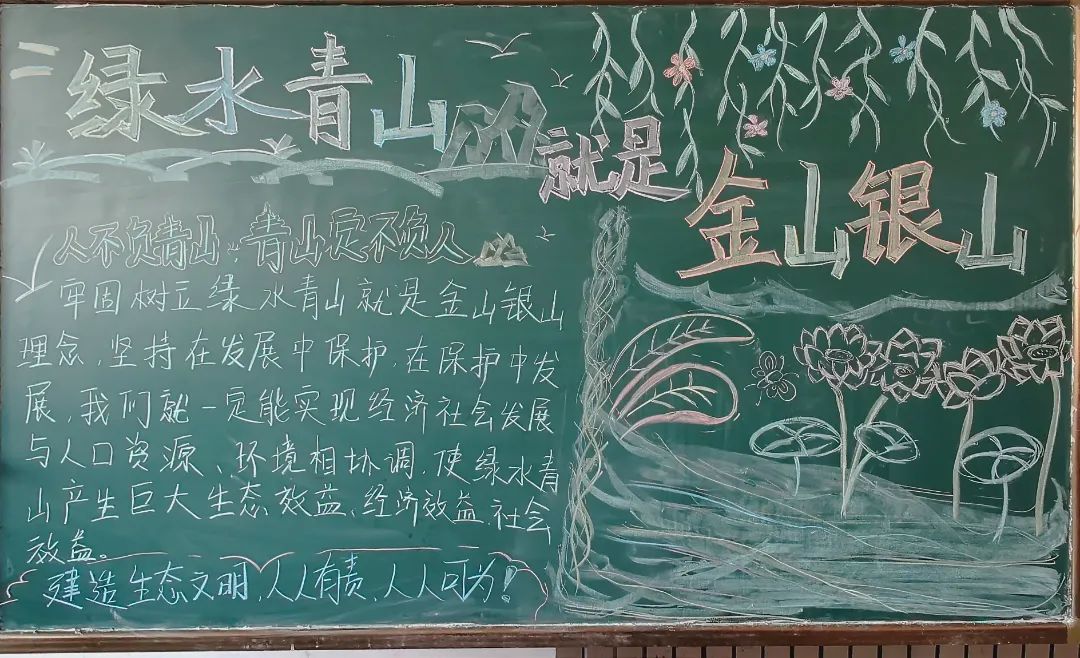 绿水青山
就是
金山银山
人不负青山，青山定不负人
牢固树立绿水青山就是金山银山
理念，坚持在发展中保护，在保护中发
展，我们就一定能实现经济社会发展
与人口资源、环境相协调，使绿水青
山产生巨大生态效益、经济效益、社会
效益。
建造生态文明，人人有责，人人可为！